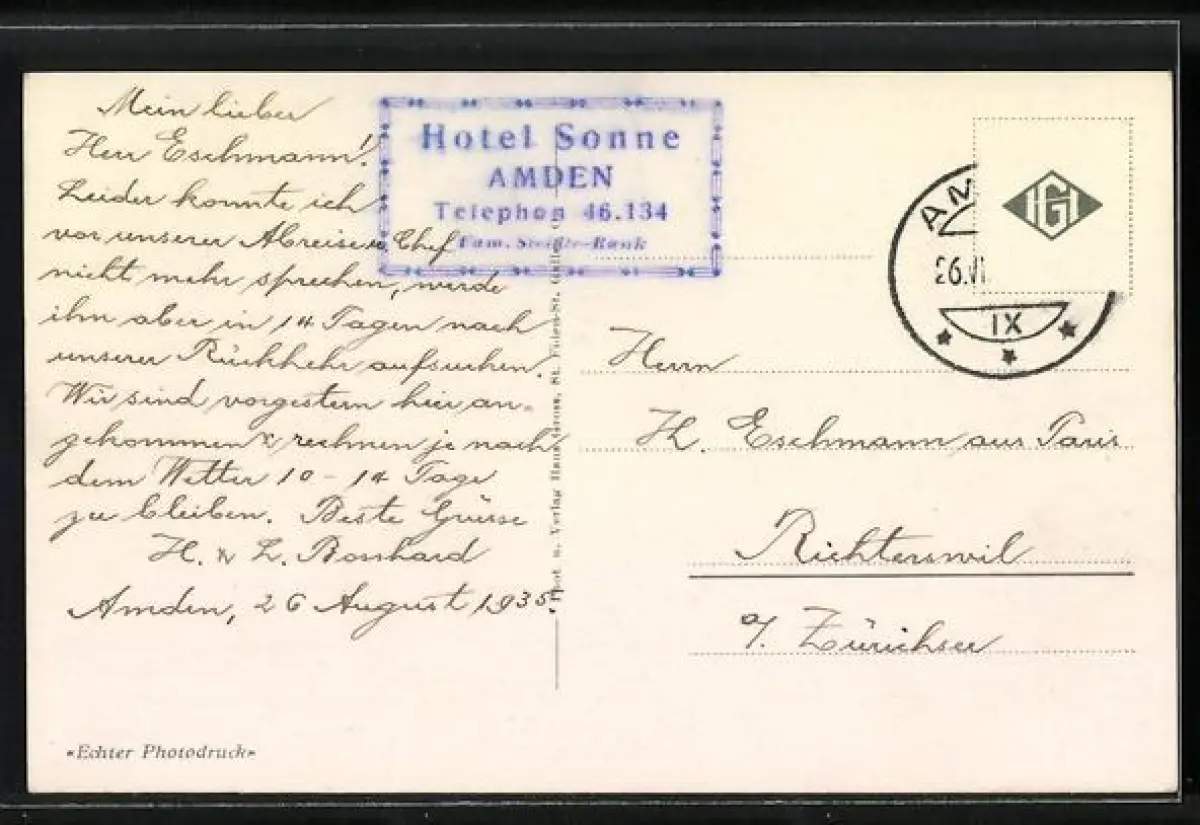 Mein lieber
Herr Eschmann!
Leider konnte ich
vor unserer Abreise Chef
nicht mehr sprechen, werde
ihn aber in 14 Tagen nach
unserer Rückkehr aufsuchen.
Wir sind vorgestern hier an-
gekommen & rechnen je nach
dem Wetter 10 - 14 Tage
zu bleiben. Beste Grüsse
H. & L. Bosshard
Amden, 26 August 1935.
«Echter Photodruck»
Hotel Sonne
AMDEN
Telephon 46.134
Fam.
u. Verlag Hans Gross, St. Fiden-St. Gallen
AM
26.VI
IX
HGI
Herrn
H. Eschmann aus Paris
Richterswil
a/. Zürichsee